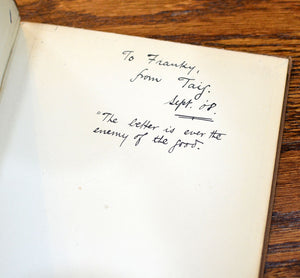 To Franky,
from Taig.
Sept. '08.
"The better is ever the
enemy of the good.